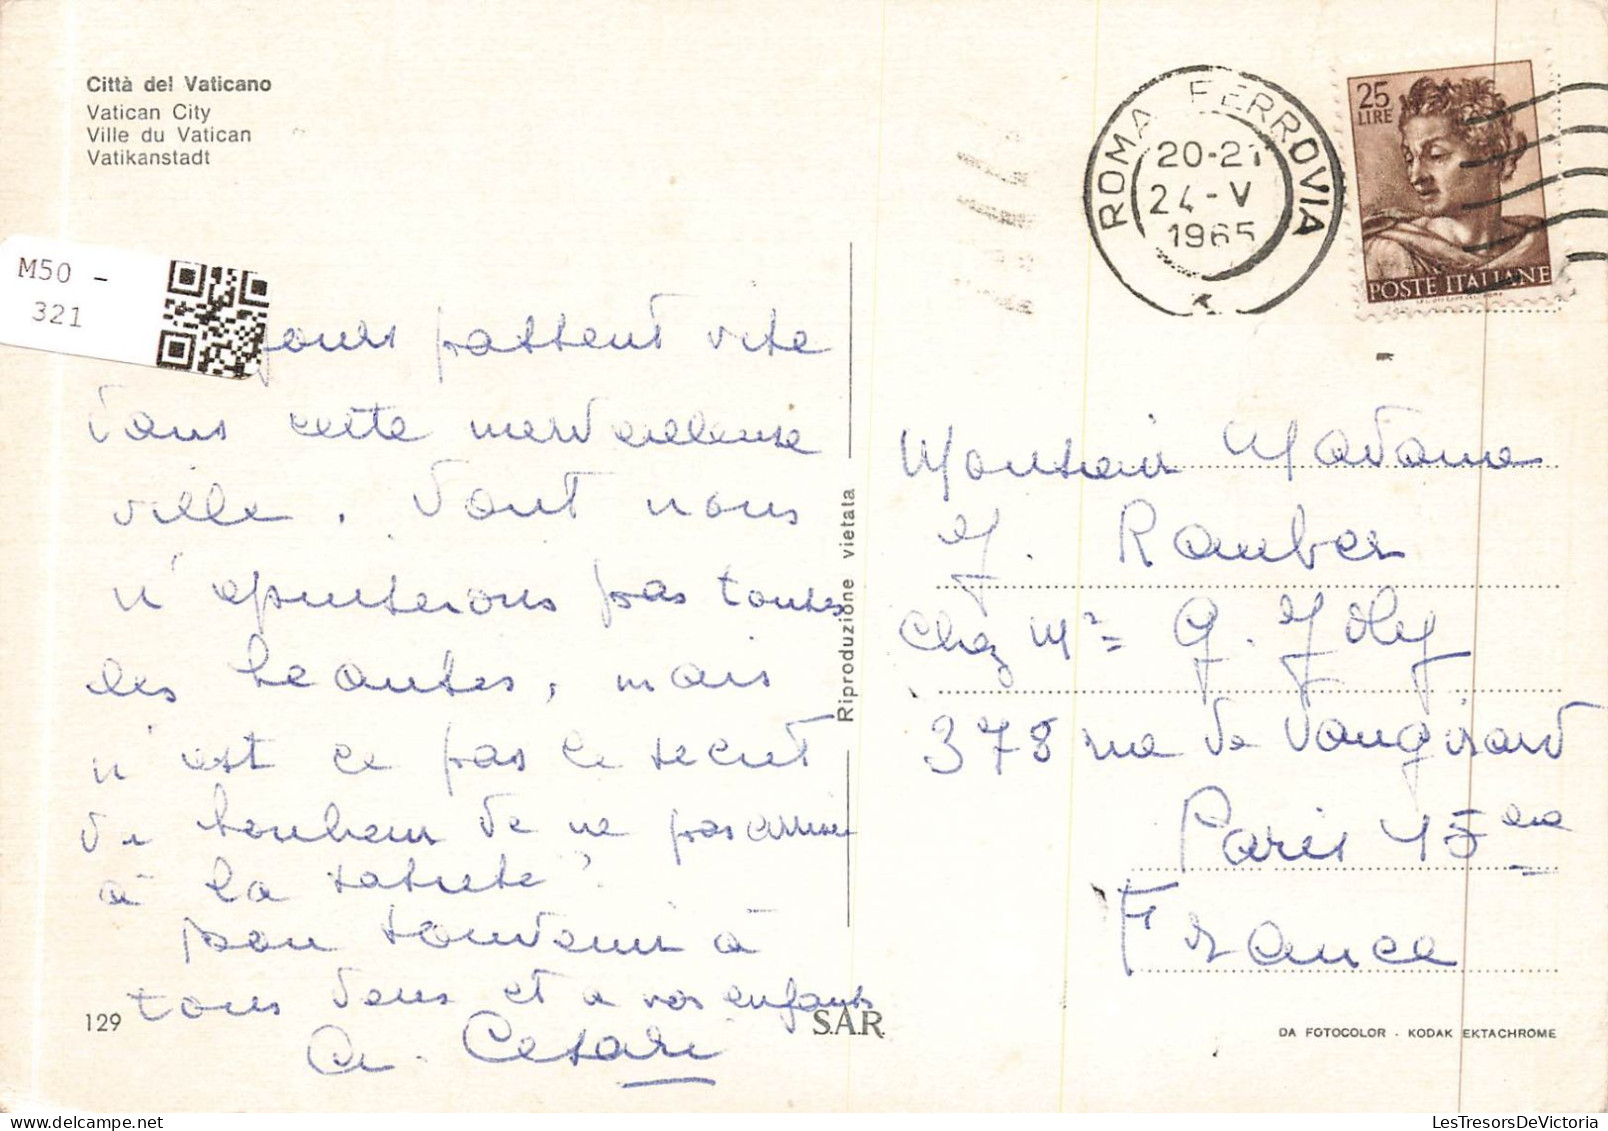 Città del Vaticano
Vatican City
Ville du Vatican
Vatikanstadt
ROMA FERROVIA
20-21
24-V
1965
25
LIRE
POSTE ITALIANE
M50 -
321
jours passent vite
dans cette merveilleuse
ville. Dont nous
n'épuiserons pas toutes
les beautés, mais
n'est ce pas le secret
du bonheur de ne pas arriver
à la satiété?
bon souvenir à
tous deux et a vos enfants
A. Cesari
Riproduzione vietata
Monsieur Madame
J. Rauber
chez Mr G. Joly
378 rue de Vaugirard
Paris 15ème
France
129
S.A.R.
DA FOTOCOLOR - KODAK EKTACHROME
www.LesTresorsDeVictoria.com